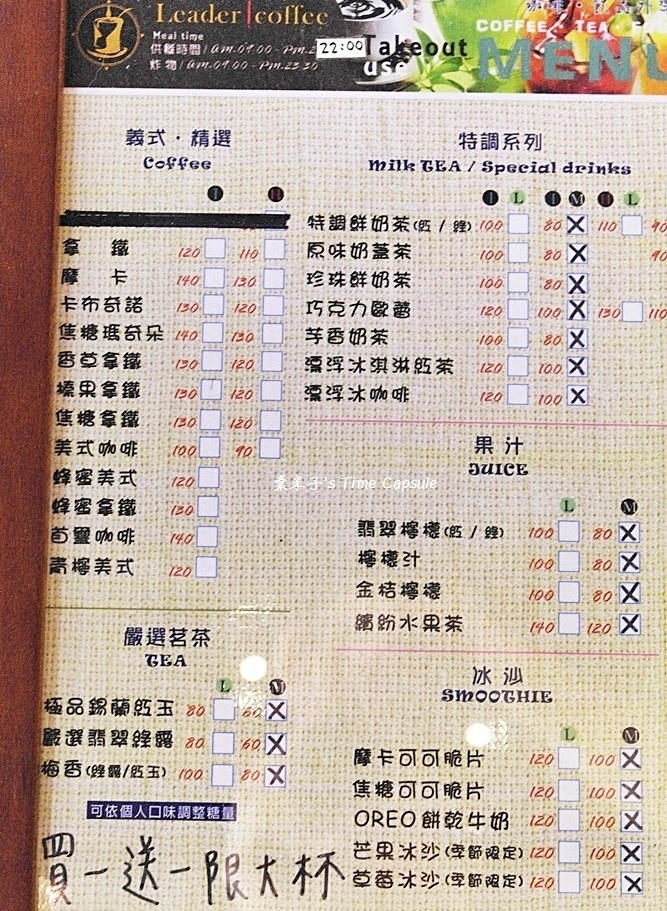 Leader coffee
Meal time
供餐時間 / am.09.00 - Pm.2 22:00
炸物 / am.09.00 - Pm.23.30
Takeout
use
COFFEE / TEA
MENU
義式・精選
Coffee
I H
拿鐵 120 110
摩卡 140 130
卡布奇諾 130 120
焦糖瑪奇朵 140 130
香草拿鐵 130 120
榛果拿鐵 130 120
焦糖拿鐵 130 120
美式咖啡 100 90
蜂蜜美式 120
蜂蜜拿鐵 130
首璽咖啡 140
青檸美式 120
嚴選茗茶
TEA
L M
極品錫蘭紅玉 80 60 X
嚴選翡翠綠露 80 60 X
梅香(綠露/紅玉) 100 80 X
可依個人口味調整糖量
買一送一限大杯
特調系列
Milk TEA / Special drinks
I L I M H L
特調鮮奶茶(紅 / 綠) 100 80 X 110 90
原味奶蓋茶 100 80 X 90
珍珠鮮奶茶 100 80 X
巧克力歐蕾 120 100 X 130 110
芋香奶茶 100 80 X
漂浮冰淇淋紅茶 120 100 X
漂浮冰咖啡 120 100 X
果汁
JUICE
L M
翡翠檸檬(紅 / 綠) 100 80 X
檸檬汁 100 80 X
金桔檸檬 100 80 X
繽紛水果茶 140 120 X
冰沙
SMOOTHIE
L M
摩卡可可脆片 120 100 X
焦糖可可脆片 120 100 X
OREO餅乾牛奶 120 100 X
芒果冰沙(季節限定) 120 100 X
草莓冰沙(季節限定) 120 100 X
's Time Capsule